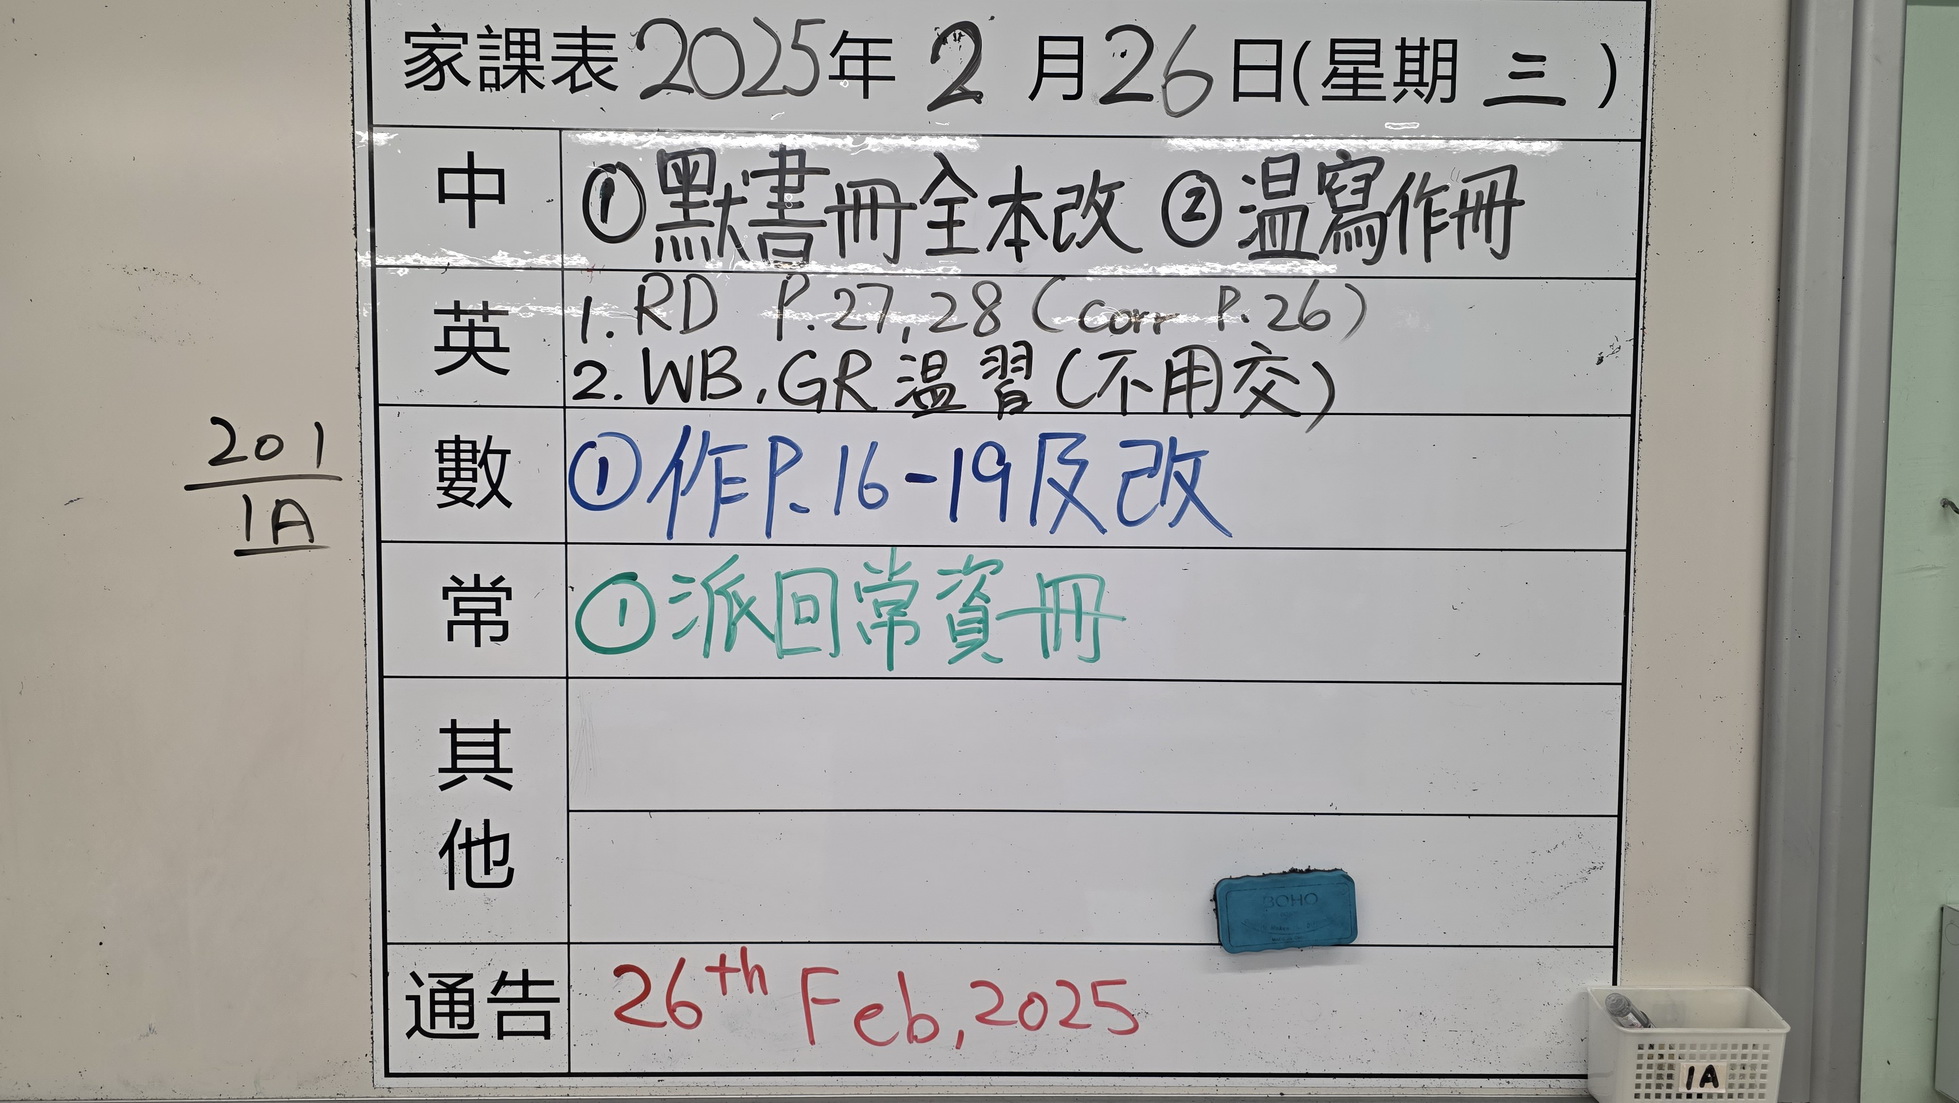 家課表2025年2月26日(星期三)
中 ①默書冊全本改 ②温寫作冊
英 1. RD P.27,28 (corr P.26)
2. WB, GR 温習(不用交)
數 ①作P.16-19及改
常 ①派回常資冊
其他
通告 26th Feb, 2025
201
1A
BOHO
1A